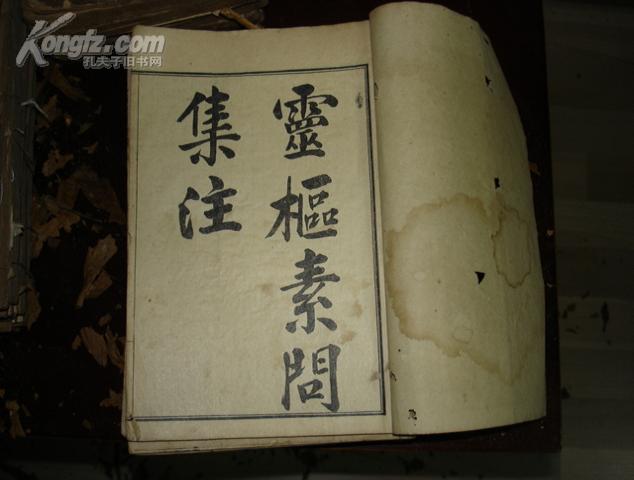 靈樞素問
集注
Kongfz.com
孔夫子旧书网